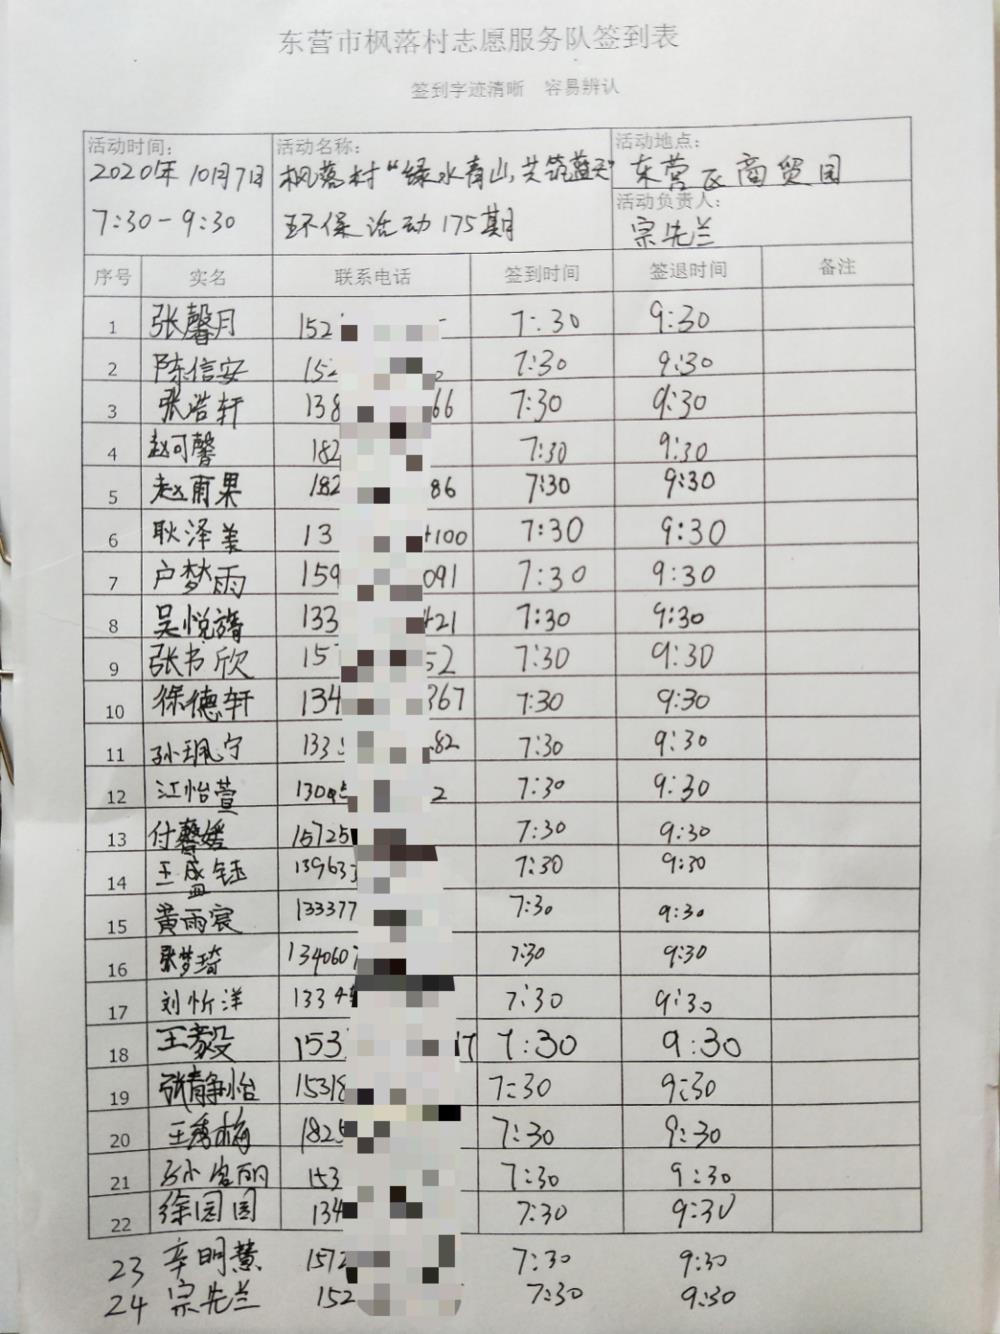 东营市枫落村志愿服务队签到表
签到字迹清晰 容易辨认
活动时间: 活动名称: 活动地点:
2020年10月7日 枫落村“绿水青山,共筑蓝天” 东营区商贸园
活动负责人:
7:30-9:30 环保活动175期 宗先兰
序号 实名 联系电话 签到时间 签退时间 备注
1 张馨月 152 7:30 9:30
2 陈信安 152 7:30 9:30
3 张浩轩 138 66 7:30 9:30
4 赵可馨 182 7:30 9:30
5 赵雨果 182 86 7:30 9:30
6 耿泽美 13 100 7:30 9:30
7 卢梦雨 159 091 7:30 9:30
8 吴悦 133 421 7:30 9:30
9 张书欣 157 52 7:30 9:30
10 徐德轩 134 367 7:30 9:30
11 孙珮宁 133 82 7:30 9:30
12 江怡萱 13095 2 7:30 9:30
13 付馨媛 15725 7:30 9:30
14 王盛钰 13963 7:30 9:30
15 黄雨宸 133377 7:30 9:30
16 张梦琦 1340607 7:30 9:30
17 刘忻洋 1334 7:30 9:30
18 王毅 153 17 7:30 9:30
19 张静怡 15318 7:30 9:30
20 王秀梅 1825 7:30 9:30
21 孙宝丽 153 7:30 9:30
22 徐园园 134 7:30 9:30
23 辛明慧 1572 7:30 9:30
24 宗先兰 152 7:30 9:30